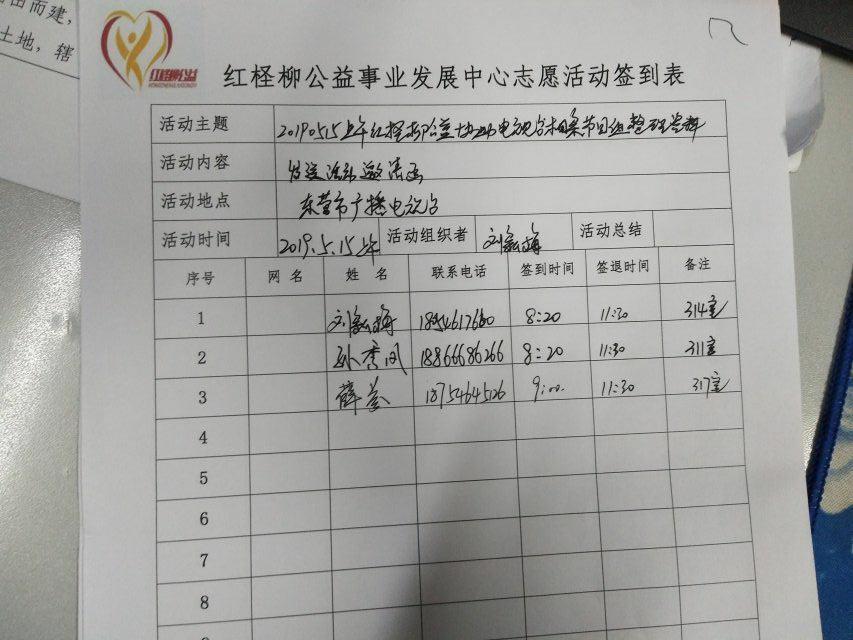 而建，
土地，辖
红柽柳公益
红柽柳公益事业发展中心志愿活动签到表
活动主题 20190515上午红柽柳公益协助电视台相亲节目组整理资料
活动内容 邀请函
活动地点 东营市广播电视台
活动时间 2019.5.15上午 活动组织者 刘 梅 活动总结
序号 网 名 姓 名 联系电话 签到时间 签退时间 备注
1 刘 梅 8:20 11:30 314室
2 孙秀凤 18866686266 8:20 11:30 311室
3 薛 9:00 11:30 317室
4
5
6
7
8